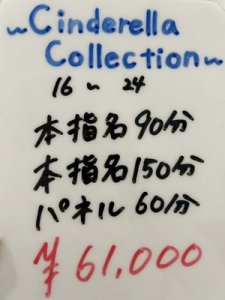 ~Cinderella
Collection~
16 ~ 24
本指名 90分
本指名 150分
パネル 60分
¥61,000